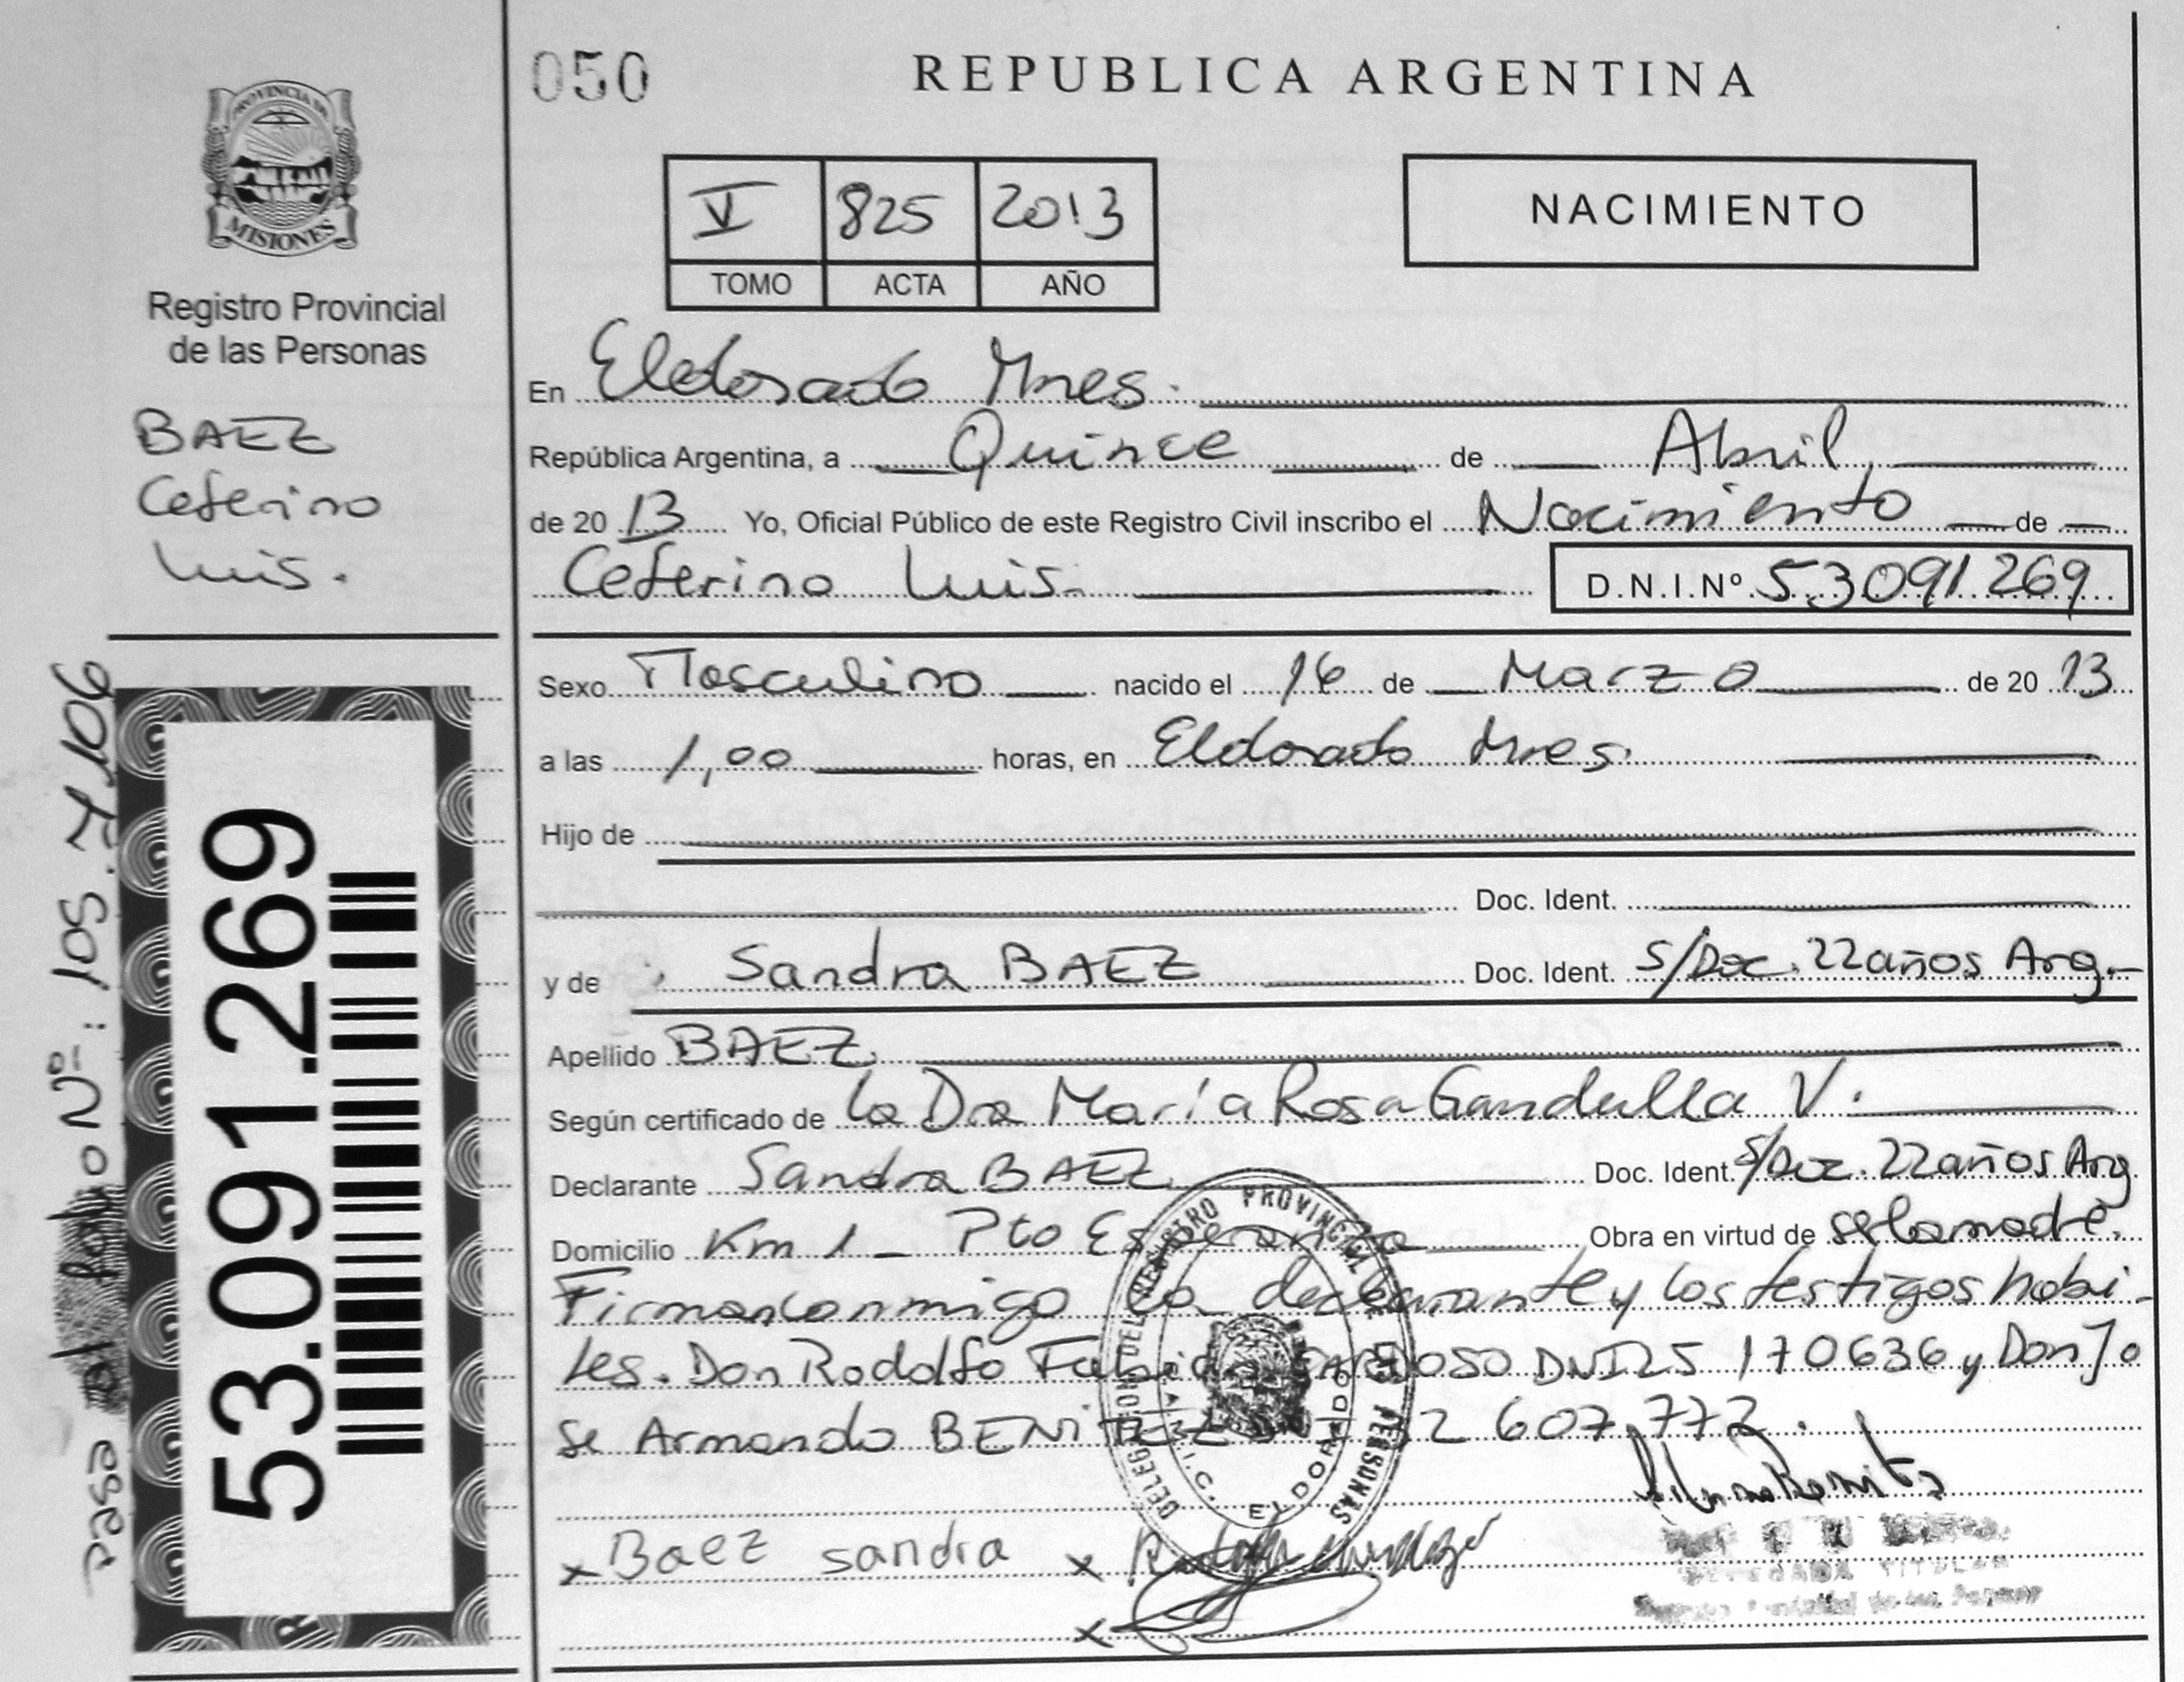 050
REPUBLICA ARGENTINA
PROVINCIA DE
MISIONES
Registro Provincial
de las Personas
BAEZ
Ceferino
Luis.
V 825 2013
TOMO ACTA AÑO
NACIMIENTO
En Eldorado Mnes.
República Argentina, a Quince de Abril
de 2013 Yo, Oficial Público de este Registro Civil inscribo el Nacimiento de
Ceferino Luis. D.N.I.Nº 53091.269
Sexo Masculino nacido el 16 de Marzo de 2013
a las 1,00 horas, en Eldorado Mnes.
Hijo de
Doc. Ident.
y de Sandra BAEZ Doc. Ident. S/Doc. 22 años Arg.
Apellido BAEZ
Según certificado de la Dra María Rosa Gandulla V.
Declarante Sandra BAEZ Doc. Ident. S/Doc. 22 años Arg
Domicilio Km 1 - Pto Esperanza Obra en virtud de se la madre.
Firman conmigo la declarante y los testigos habi-
les. Don Rodolfo Fabian CARDOSO DNI 25 170636 y Don Jo
se Armando BENITEZ 32 607.772.
x Baez sandra x
x
DELEGACION DEL REGISTRO PROVINCIAL DE LAS PERSONAS
ELDORADO
TITULAR
53.091.269
pasa al folio Nº: 105. 7.106